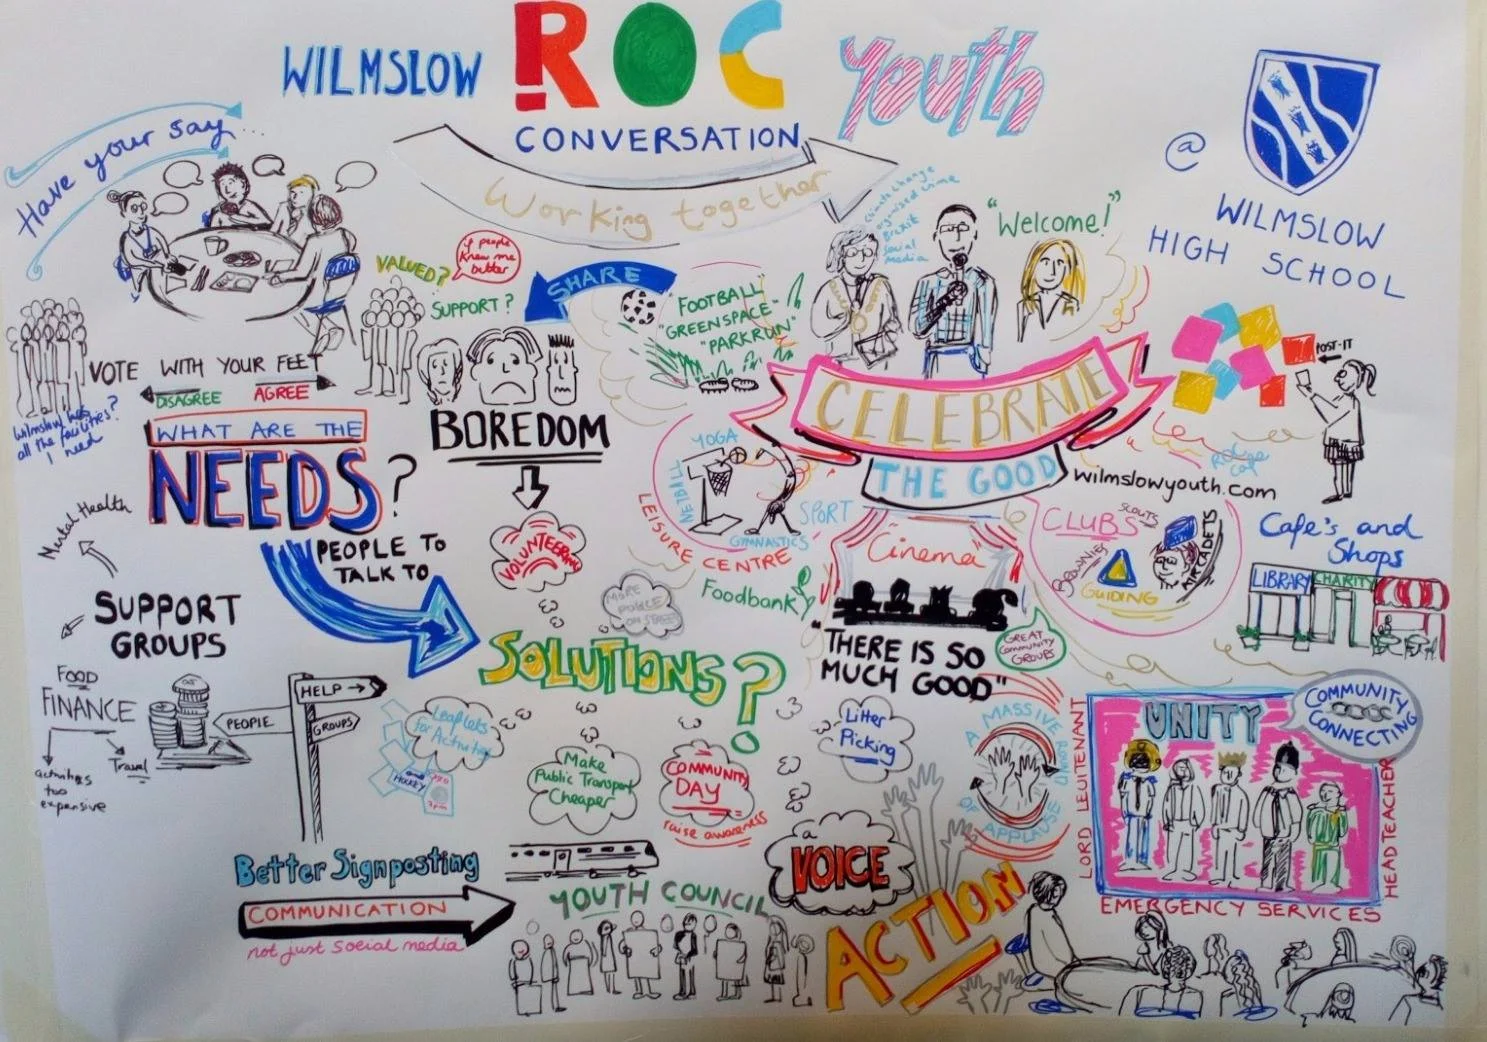 WILMSLOW
ROC
Youth
CONVERSATION
Working together
Have your say...
@
WILMSLOW
HIGH SCHOOL
climate change
organised crime
Brexit
social
media
"Welcome!"
VALUED?
if people
knew me
better
SUPPORT?
SHARE
FOOTBALL
"GREENSPACE"
"PARKRUN"
VOTE WITH YOUR FEET
DISAGREE
AGREE
Wilmslow has
all the facilities?
I need
WHAT ARE THE
NEEDS?
BOREDOM
CELEBRATE
THE GOOD
POST-IT
wilmslowyouth.com
YOGA
NETBALL
SPORT
GYMNASTICS
LEISURE CENTRE
Mental Health
PEOPLE TO
TALK TO
VOLUNTEERING
MORE
POLICE
ON STREET
Foodbank
Cinema
CLUBS
SCOUTS
BROWNIES
AIR CADETS
GUIDING
Cafe's and
Shops
LIBRARY
CHARITY
SUPPORT
GROUPS
SOLUTIONS?
"THERE IS SO
MUCH GOOD"
GREAT
COMMUNITY
GROUPS
FOOD
FINANCE
activities
too
expensive
Travel
HELP
PEOPLE
GROUPS
Leaflets
for Activities
HOCKEY
7pm
Make
Public Transport
Cheaper
COMMUNITY
DAY
raise awareness
Litter
Picking
A MASSIVE
ROUND
OF APPLAUSE
UNITY
COMMUNITY
CONNECTING
LORD LEUITENANT
HEADTEACHER
EMERGENCY SERVICES
Better Signposting
COMMUNICATION
not just social media
YOUTH COUNCIL
a
VOICE
ACTION